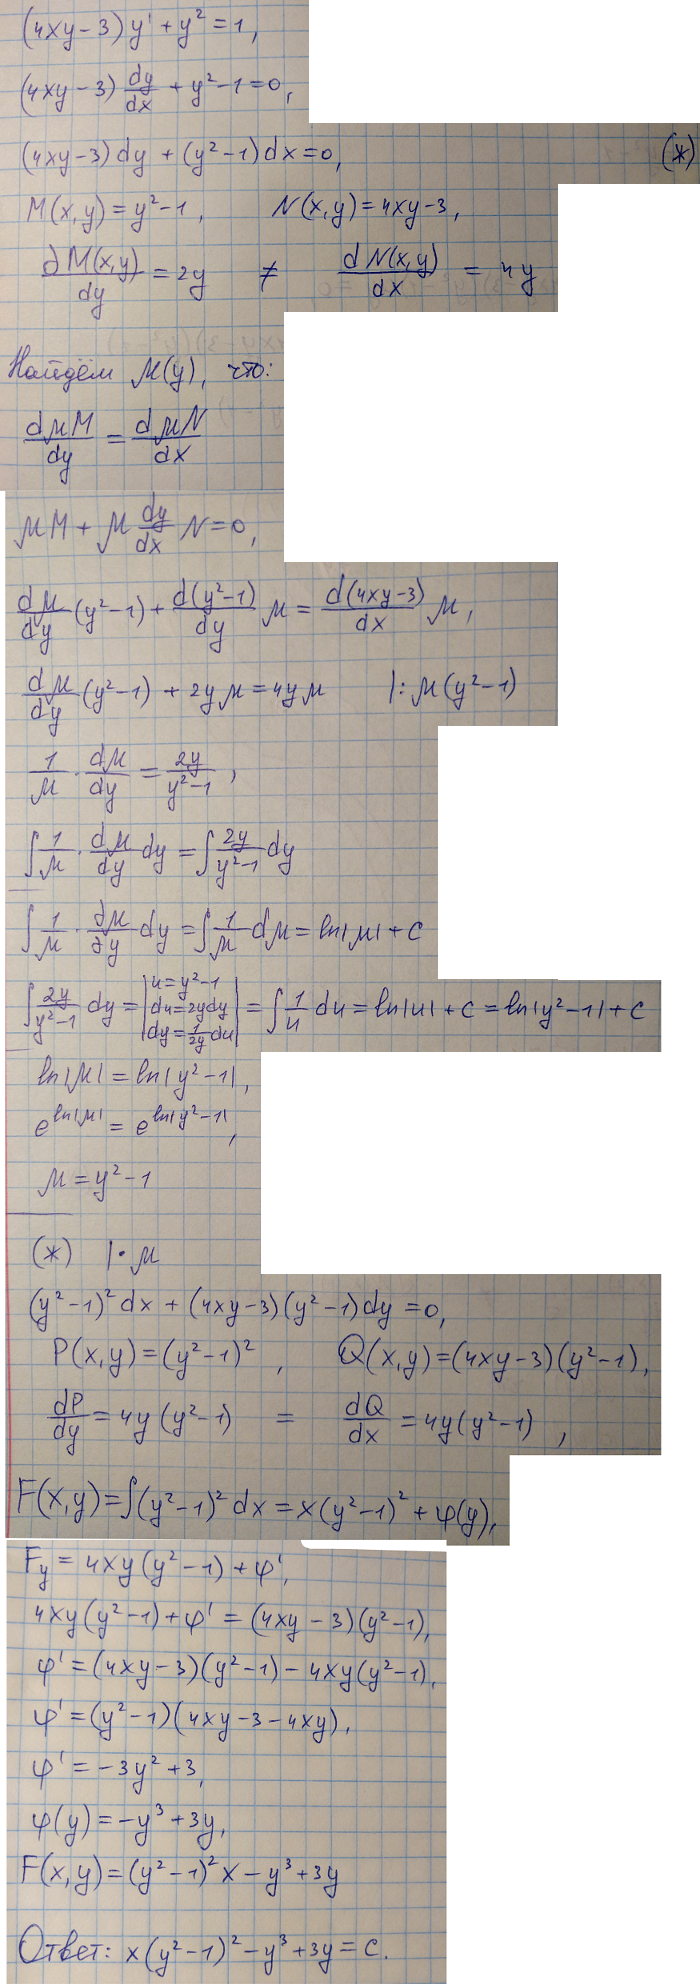 (4xy-3)y'+y²=1,
(4xy-3)dy/dx+y²-1=0,
(4xy-3)dy+(y²-1)dx=0, (ж)
M(x,y)=y²-1, N(x,y)=4xy-3,
∂M(x,y)/dy=2y ≠ dN(x,y)/dx=4y
Найдём μ(y), что:
dμM/dy=dμN/dx
μM+μ dy/dx N=0,
dμ/dy(y²-1)+d(y²-1)/dy μ=d(4xy-3)/dx μ,
dμ/dy(y²-1)+2yμ=4yμ |:μ(y²-1)
1/μ·dμ/dy=2y/(y²-1),
∫1/μ·dμ/dy dy=∫2y/(y²-1)dy
∫1/μ·∂μ/∂y dy=∫1/μ dμ=ln|μ|+c
∫2y/(y²-1)dy=|u=y²-1 du=2ydy dy=1/2y du|=∫1/u du=ln|u|+c=ln|y²-1|+c
ln|μ|=ln|y²-1|,
e^ln|μ|=e^ln|y²-1|,
μ=y²-1
(ж) |·μ
(y²-1)²dx+(4xy-3)(y²-1)dy=0,
P(x,y)=(y²-1)², Q(x,y)=(4xy-3)(y²-1),
dP/dy=4y(y²-1) = dQ/dx=4y(y²-1),
F(x,y)=∫(y²-1)²dx=x(y²-1)²+φ(y),
F_y=4xy(y²-1)+φ',
4xy(y²-1)+φ'=(4xy-3)(y²-1),
φ'=(4xy-3)(y²-1)-4xy(y²-1),
φ'=(y²-1)(4xy-3-4xy),
φ'=-3y²+3,
φ(y)=-y³+3y,
F(x,y)=(y²-1)²x-y³+3y
Ответ: x(y²-1)²-y³+3y=c.